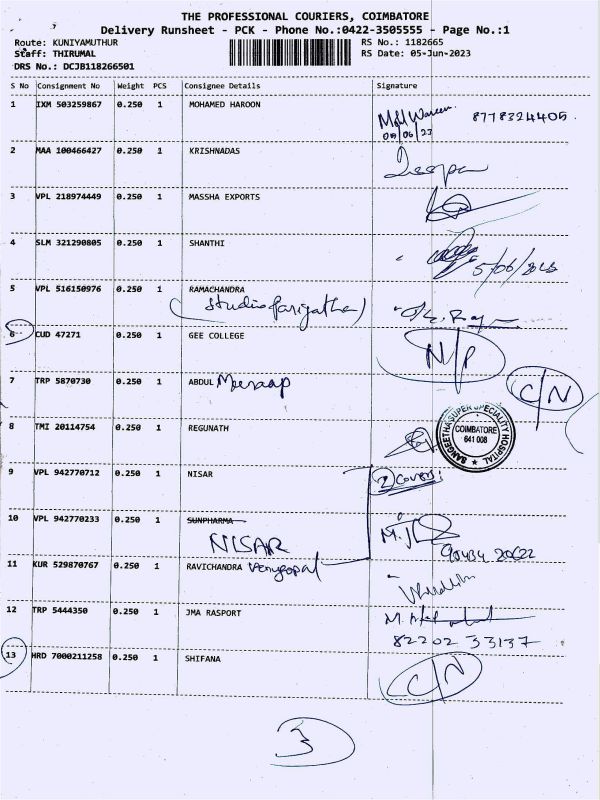 THE PROFESSIONAL COURIERS, COIMBATORE
Delivery Runsheet - PCK - Phone No.:0422-3505555 - Page No.:1
Route: KUNIYAMUTHUR RS No.: 1182665
Staff: THIRUMAL RS Date: 05-Jun-2023
DRS No.: DCJB118266501
S No Consignment No Weight PCS Consignee Details Signature
1 IXM 503259867 0.250 1 MOHAMED HAROON 8778324405.
05/06/23
2 MAA 100466427 0.250 1 KRISHNADAS Deepa
3 VPL 218974449 0.250 1 MASSHA EXPORTS
4 SLM 321290805 0.250 1 SHANTHI
5 VPL 516150976 0.250 1 RAMACHANDRA
6 CUD 47271 0.250 1 GEE COLLEGE N/P
7 TRP 5870730 0.250 1 ABDUL C/N
8 TMI 20114754 0.250 1 REGUNATH
SANGEETHA SUPER SPECIALITY HOSPITAL
COIMBATORE
641 008
9 VPL 942770712 0.250 1 NISAR 2 Covers
10 VPL 942770233 0.250 1 SUNPHARMA
NISAR
11 KUR 529870767 0.250 1 RAVICHANDRA Venugopal
12 TRP 5444350 0.250 1 JMA RASPORT
82202 33137
13 HRD 7000211258 0.250 1 SHIFANA C/N
3